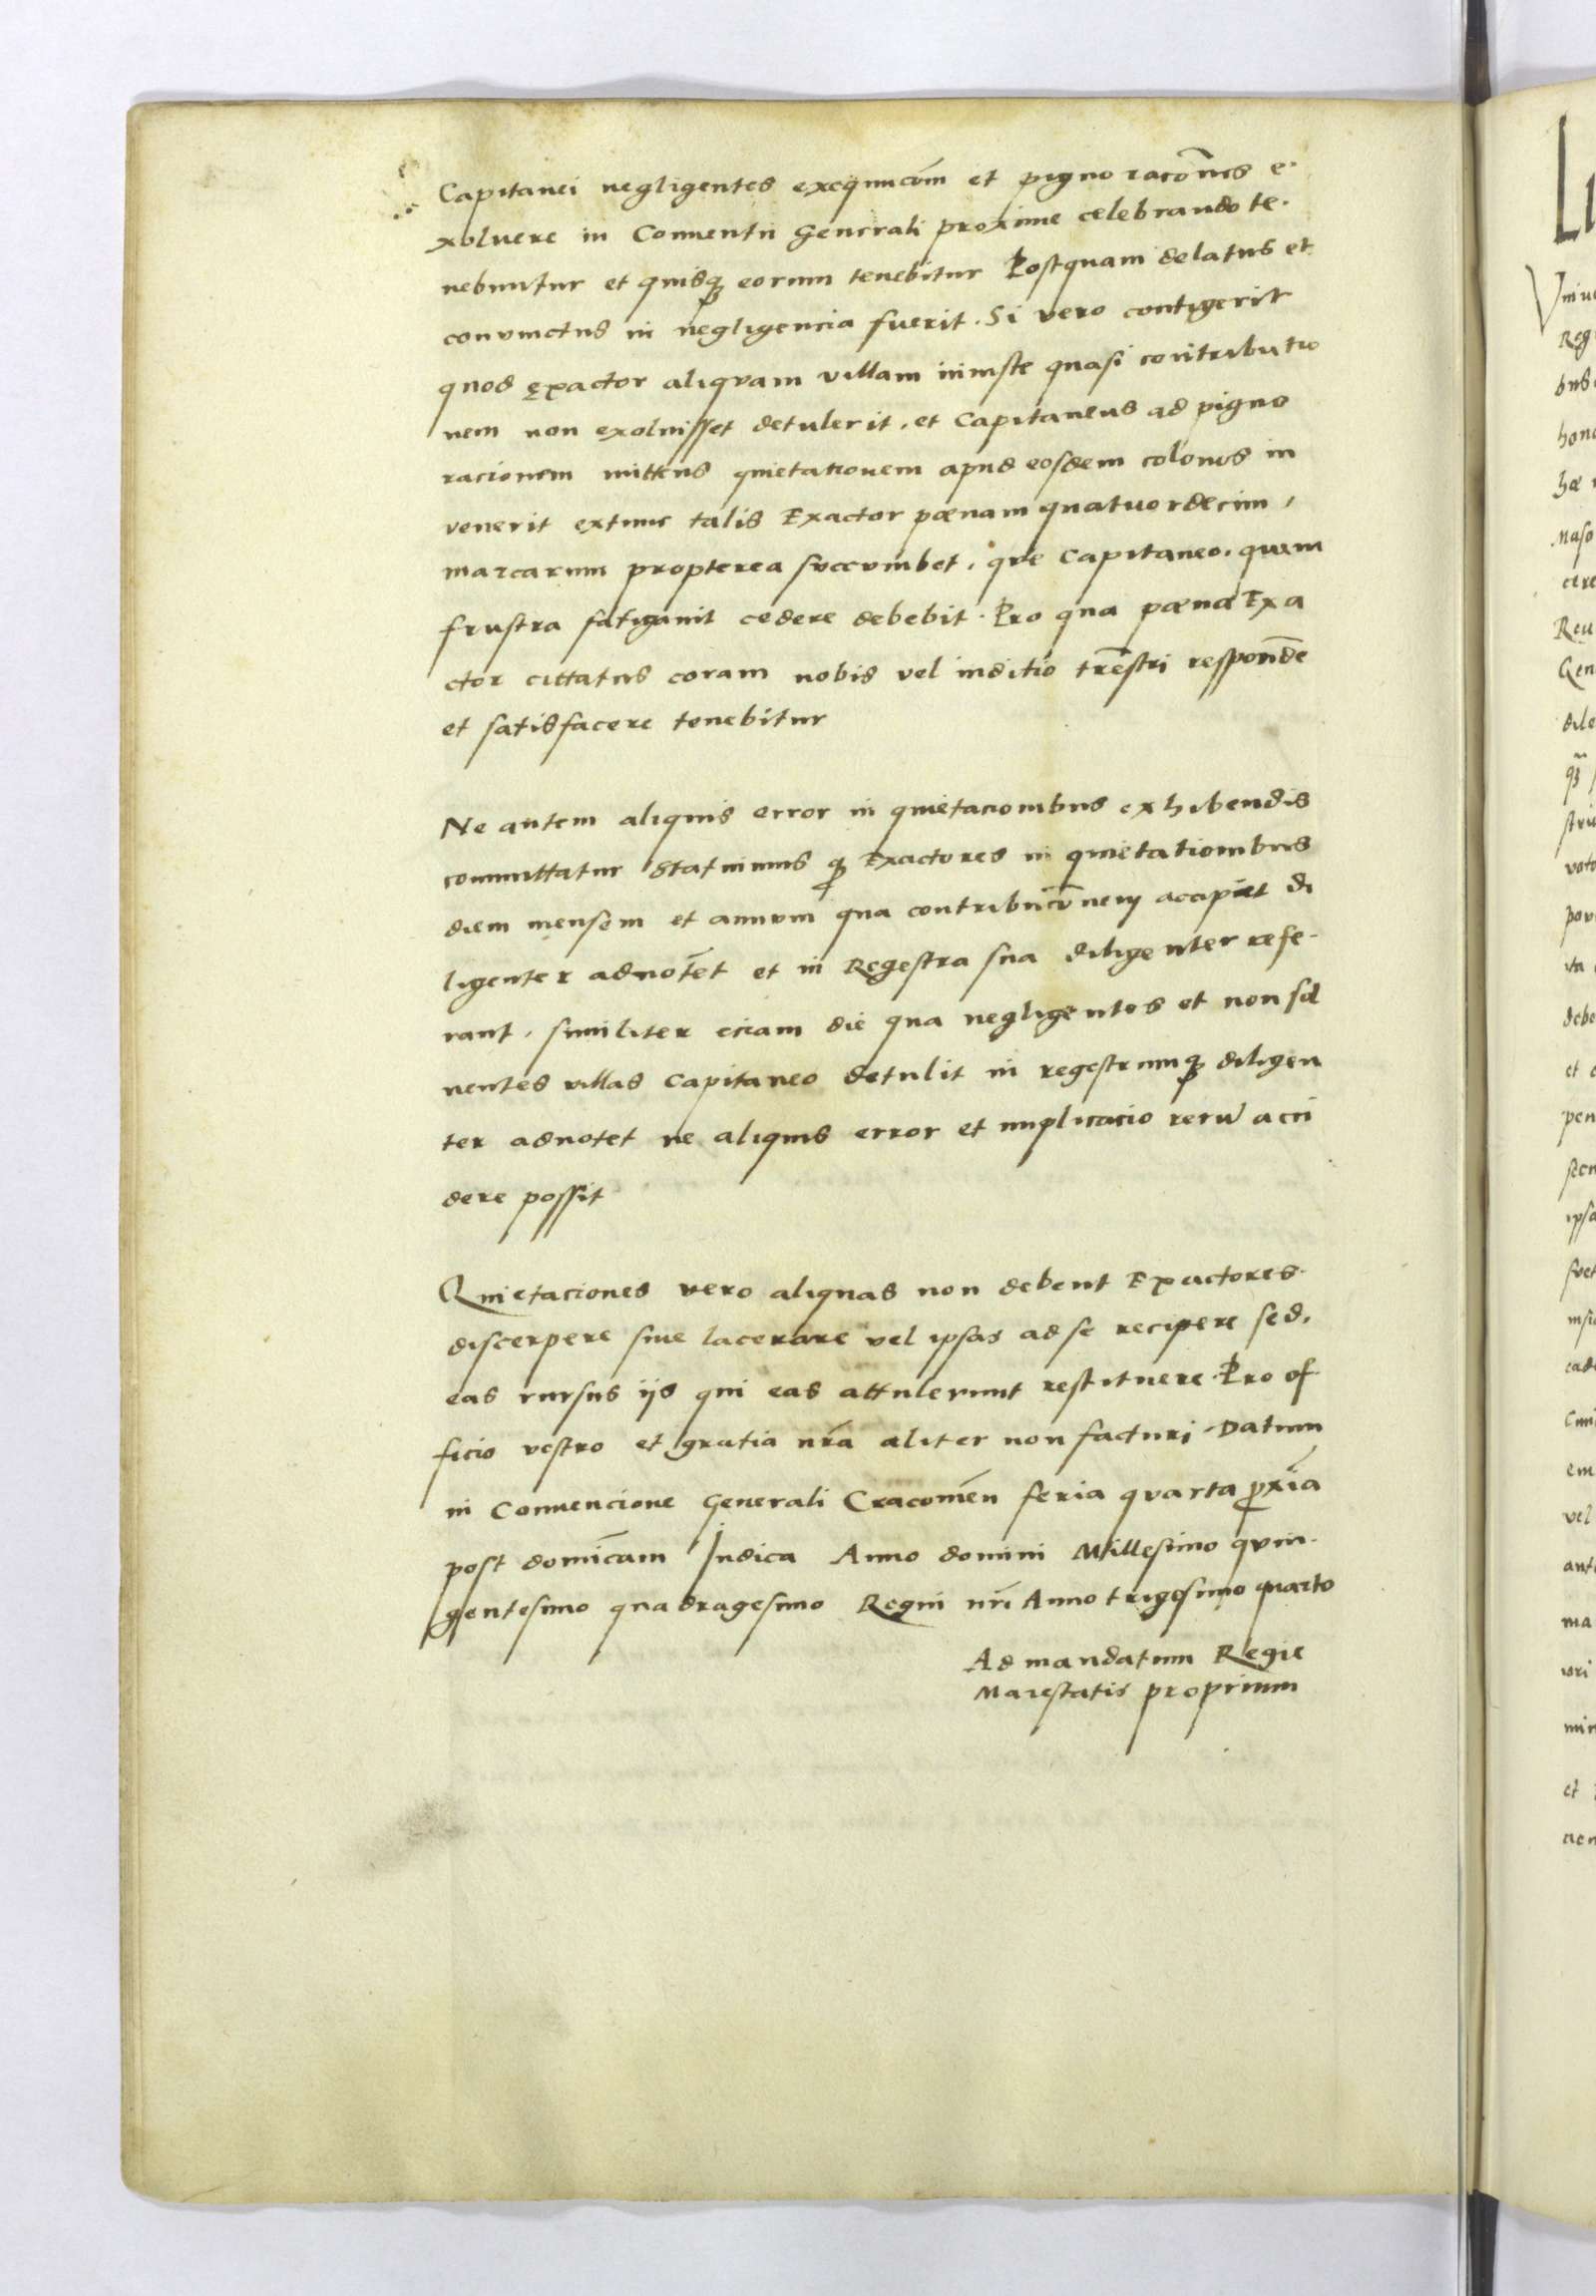 Capitanei negligentes exequucōm et pignoracōnis e
xoluere in Conuentu Generali proxime celebrando te
nebuntur et quisq eorum tenebitur Postquam delatus et
conuinctus in negligencia fuerit. Si vero contigerit
quod exactor aliquam villam iniuste quasi contributio
nem non exoluisset detulerit, et Capitaneus ad pigno
racionem mittens quietationem apud eosdem colonos in
venerit extunc talis Exactor pœnam quatuordecim,
marcarum propterea succumbet, que Capitaneo, quem
frustra fatigauit cedere debebit. Pro qua pœna Exa
ctor cittatus coram nobis vel inditio trēstri respondē
et satisfacere tenebitur
Ne autem aliquis error in quietacionibus exhibendis
committatur Statuimus q Exactores in quietationibus
diem mensem et annum qua contribucōnem accapiet di
ligenter adnotēt et in Regestra sua diligenter refe
rant, similiter eciam die qua negligentes et non sol
uentes villas Capitaneo detulit in regestrumq diligen
ter adnotet ne aliquis error et implicacio rerū acci
dere possit
Quietaciones vero aliquas non debent Exactores
discerpere siue lacerare vel ipsas ad se recipere sed,
eas rursus iis qui eas attulerunt restituere. Pro of
ficio vestro et gratia nrā aliter non facturi. Datum
in Conuencione Generali Cracouiēn feria quarta prxīa
post domīcam Judica Anno domini Millesimo quin
gentesimo quadragesimo Regni nrī Anno trigesimo quarto
Ad mandatum Regie
Maiestatis proprium